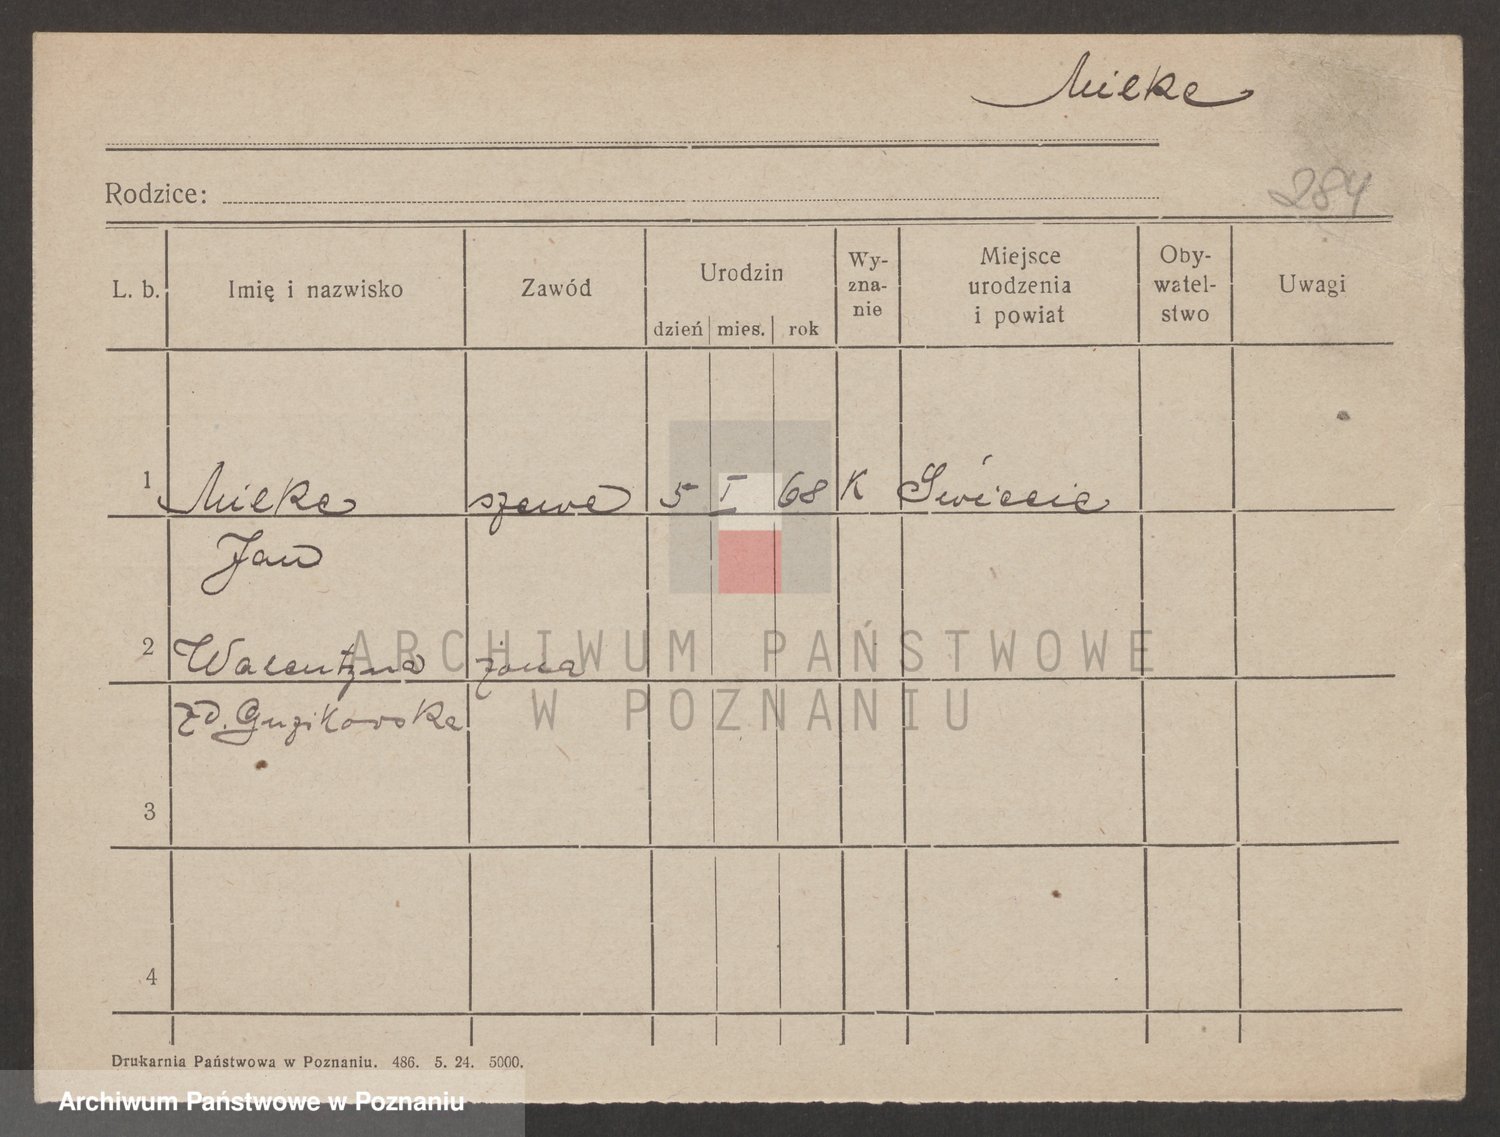 Mielke
Rodzice:
284
L. b. Imię i nazwisko Zawód Urodzin dzień mies. rok Wy-zna-nie Miejsce urodzenia i powiat Oby-watel-stwo Uwagi
1 Mielke szewc 5 I 68 K Świecie
Jan
2 Walentyna żona
ARCHIWUM PAŃSTWOWE
W POZNANIU
zd. Guzikowska
3
4
Drukarnia Państwowa w Poznaniu. 486. 5. 24. 5000.
Archiwum Państwowe w Poznaniu